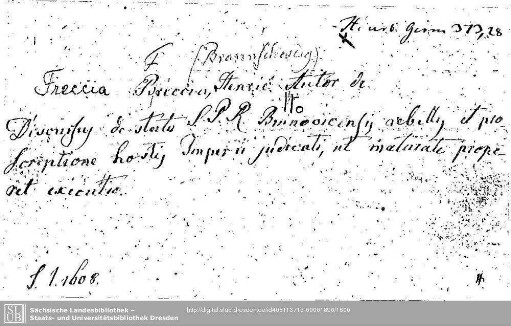 Hist. urb. Germ. 373,28
(Braunschweig)
F
Freccia Breccia, Henric. Autor de
Discursus de statu S. P. R. Brunovicensis rebellis et pro
scriptione hostis Imperii judicati, ut maturate prope
ret executio.
S. l. 1608.
Sächsische Landesbibliothek –
Staats- und Universitätsbibliothek Dresden